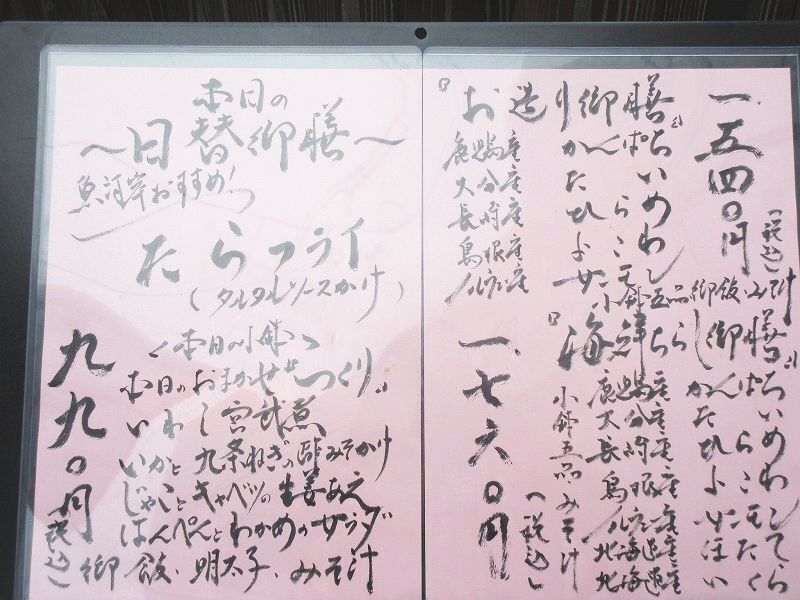 本日の
～日替御膳～
魚河岸おすすめ！
たらフライ
（タルタルソースかけ）
＜本日の小鉢＞
本日のおまかせ〝つくり〟
いわし煮
いかと九条ねぎの酢みそかけ
じゃことキャベツの生姜あえ
はんぺんとわかめのサラダ
御飯・明太子・みそ汁
九九〇円（税込）
『お造り御膳』
鹿児島産 かんぱち
大分産 たい
長崎産 ひらめ
島根産 よこわ
ノルウェー産 サーモン
小鉢五品 御飯 みそ汁
一五四〇円（税込）
『海鮮ちらし御膳』
鹿児島産 かんぱち
大分産 たい
長崎産 ひらめ
島根産 よこわ
ノルウェー産 サーモン
北海道産 ほたて
北海道産 いくら
小鉢五品 みそ汁
一七六〇円（税込）